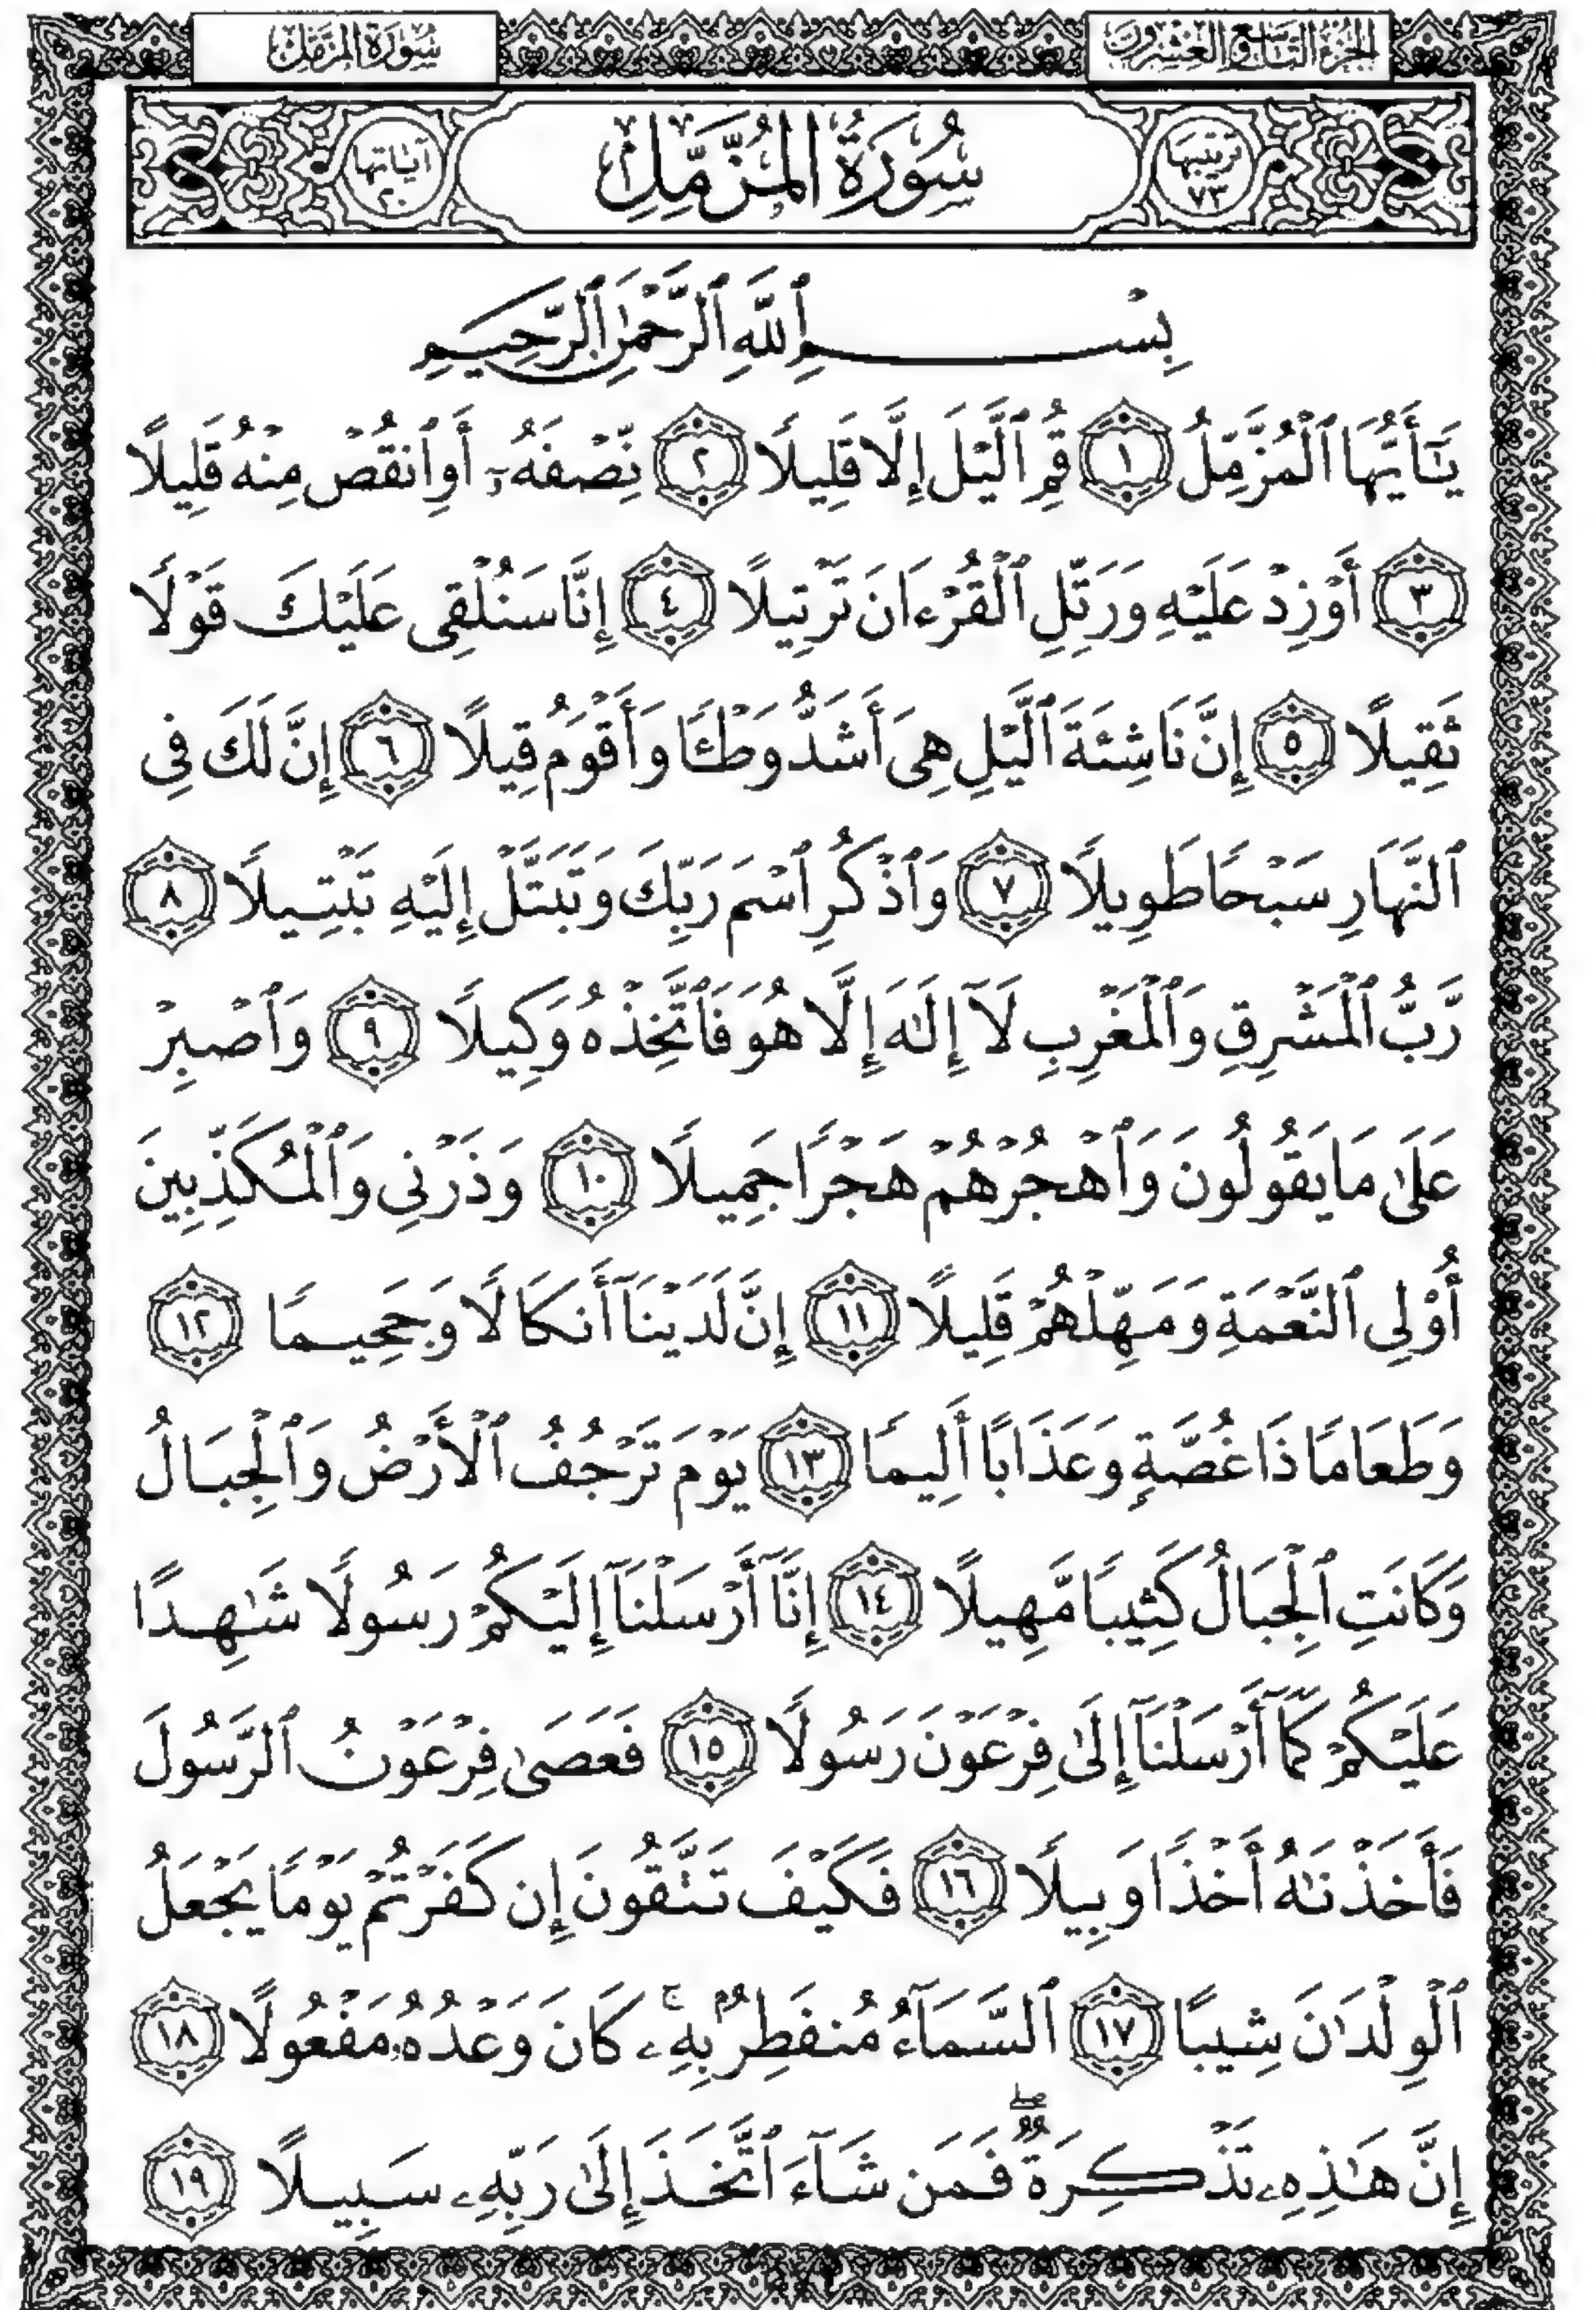 سُورَةُ المُزَّمِّلِ
الجُزْءُ التَّاسِعُ وَالعِشْرُونَ
ترتيبها ٧٣
سُورَةُ المُزَّمِّلِ
آياتها ٢٠
بِسْمِ ٱللَّهِ ٱلرَّحْمَٰنِ ٱلرَّحِيمِ
يَٰٓأَيُّهَا ٱلْمُزَّمِّلُ ١ قُمِ ٱلَّيْلَ إِلَّا قَلِيلًا ٢ نِّصْفَهُۥٓ أَوِ ٱنقُصْ مِنْهُ قَلِيلًا
٣ أَوْ زِدْ عَلَيْهِ وَرَتِّلِ ٱلْقُرْءَانَ تَرْتِيلًا ٤ إِنَّا سَنُلْقِى عَلَيْكَ قَوْلًا
ثَقِيلًا ٥ إِنَّ نَاشِئَةَ ٱلَّيْلِ هِىَ أَشَدُّ وَطْـًٔا وَأَقْوَمُ قِيلًا ٦ إِنَّ لَكَ فِى
ٱلنَّهَارِ سَبْحًا طَوِيلًا ٧ وَٱذْكُرِ ٱسْمَ رَبِّكَ وَتَبَتَّلْ إِلَيْهِ تَبْتِيلًا ٨
رَّبُّ ٱلْمَشْرِقِ وَٱلْمَغْرِبِ لَآ إِلَٰهَ إِلَّا هُوَ فَٱتَّخِذْهُ وَكِيلًا ٩ وَٱصْبِرْ
عَلَىٰ مَا يَقُولُونَ وَٱهْجُرْهُمْ هَجْرًا جَمِيلًا ١٠ وَذَرْنِى وَٱلْمُكَذِّبِينَ
أُو۟لِى ٱلنَّعْمَةِ وَمَهِّلْهُمْ قَلِيلًا ١١ إِنَّ لَدَيْنَآ أَنكَالًا وَجَحِيمًا ١٢
وَطَعَامًا ذَا غُصَّةٍ وَعَذَابًا أَلِيمًا ١٣ يَوْمَ تَرْجُفُ ٱلْأَرْضُ وَٱلْجِبَالُ
وَكَانَتِ ٱلْجِبَالُ كَثِيبًا مَّهِيلًا ١٤ إِنَّآ أَرْسَلْنَآ إِلَيْكُمْ رَسُولًا شَٰهِدًا
عَلَيْكُمْ كَمَآ أَرْسَلْنَآ إِلَىٰ فِرْعَوْنَ رَسُولًا ١٥ فَعَصَىٰ فِرْعَوْنُ ٱلرَّسُولَ
فَأَخَذْنَٰهُ أَخْذًا وَبِيلًا ١٦ فَكَيْفَ تَتَّقُونَ إِن كَفَرْتُمْ يَوْمًا يَجْعَلُ
ٱلْوِلْدَٰنَ شِيبًا ١٧ ٱلسَّمَآءُ مُنفَطِرٌۢ بِهِۦ ۚ كَانَ وَعْدُهُۥ مَفْعُولًا ١٨
إِنَّ هَٰذِهِۦ تَذْكِرَةٌ ۖ فَمَن شَآءَ ٱتَّخَذَ إِلَىٰ رَبِّهِۦ سَبِيلًا ١٩